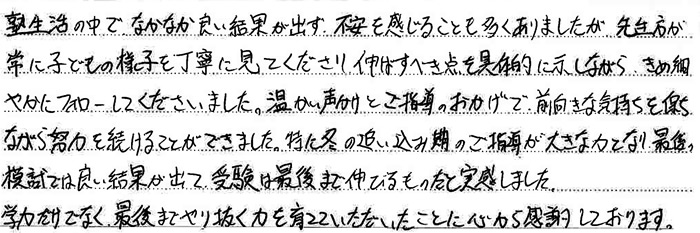 塾生活の中で なかなか良い結果が出ず 不安を感じることも多くありましたが 先生方が
常に子どもの様子を丁寧に見てくださり 伸ばすべき点を具体的に示しながら きめ細
やかにフォローしてくださいました。温かい声かけとご指導のおかげで、前向きな気持ちを保ち
ながら努力を続けることができました。特に冬の追い込み期のご指導が大きな力となり 最後の
模試では良い結果が出て、受験は最後まで伸びるものだと実感しました。
学力だけでなく、最後までやり抜く力を育てていただいたことに心から感謝しております。